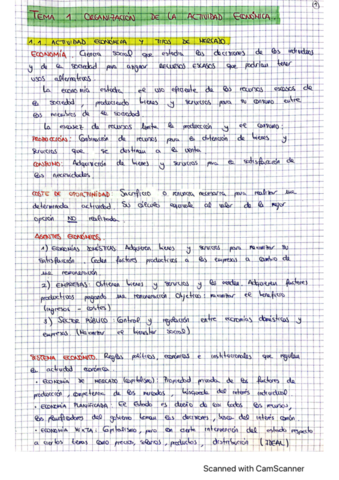 1
TEMA 1 ORGANIZACIÓN DE LA ACTIVIDAD ECONÓMICA.
1.1 ACTIVIDAD ECONOMICA Y TIPOS DE MERCADO
ECONOMÍA: Ciencia social que estudia las decisiones de los individuos
y de la sociedad para asignar RECURSOS ESCASOS que podrían tener
usos alternativos.
La economía estudia el uso eficiente de los recursos escasos de
la sociedad, produciendo bienes y servicios para su consumo entre
los miembros de la sociedad.
La escasez de recursos limita la producción y el consumo.
PRODUCCIÓN: Combinación de recursos para la obtención de bienes y
servicios que se destinan a la venta.
CONSUMO: Adquisición de bienes y servicios para la satisfacción de
las necesidades.
COSTE DE OPORTUNIDAD Sacrificio o recursos necesarios para realizar una
determinada actividad. Su cálculo equivale al valor de la mejor
opción NO realizada.
AGENTES ECONÓMICOS
1) ECONOMÍAS DOMÉSTICAS Adquieren bienes y servicios para maximizar su
satisfacción. Ceden factores productivos a las empresas a cambio de
una remuneración.
2) EMPRESAS: Obtienen bienes y servicios y los venden. Adquieren factores
productivos pagando una remuneración. Objetivo: maximizar el beneficio
(ingresos - costes)
3) SECTOR PÚBLICO: Control y regulación entre economías domésticas y
empresas (Maximizar el bienestar social)
SISTEMA ECONÓMICO. Reglas políticas, económicas e institucionales que regulan
la actividad económica
· ECONOMÍA DE MERCADO (capitalismo): Propiedad privada de los factores de
producción, competencia de los mercados, búsqueda del interés individual
· ECONOMÍA PLANIFICADA. El Estado es dueño de casi todos los recursos,
los planificadores del gobierno toman las decisiones, busca del interés común
· ECONOMÍA MIXTA: Capitalismo, pero con cierta intervención del estado respecto
a ciertos temas como precios, salarios, productos, distribución (IDEAL)
Scanned with CamScanner